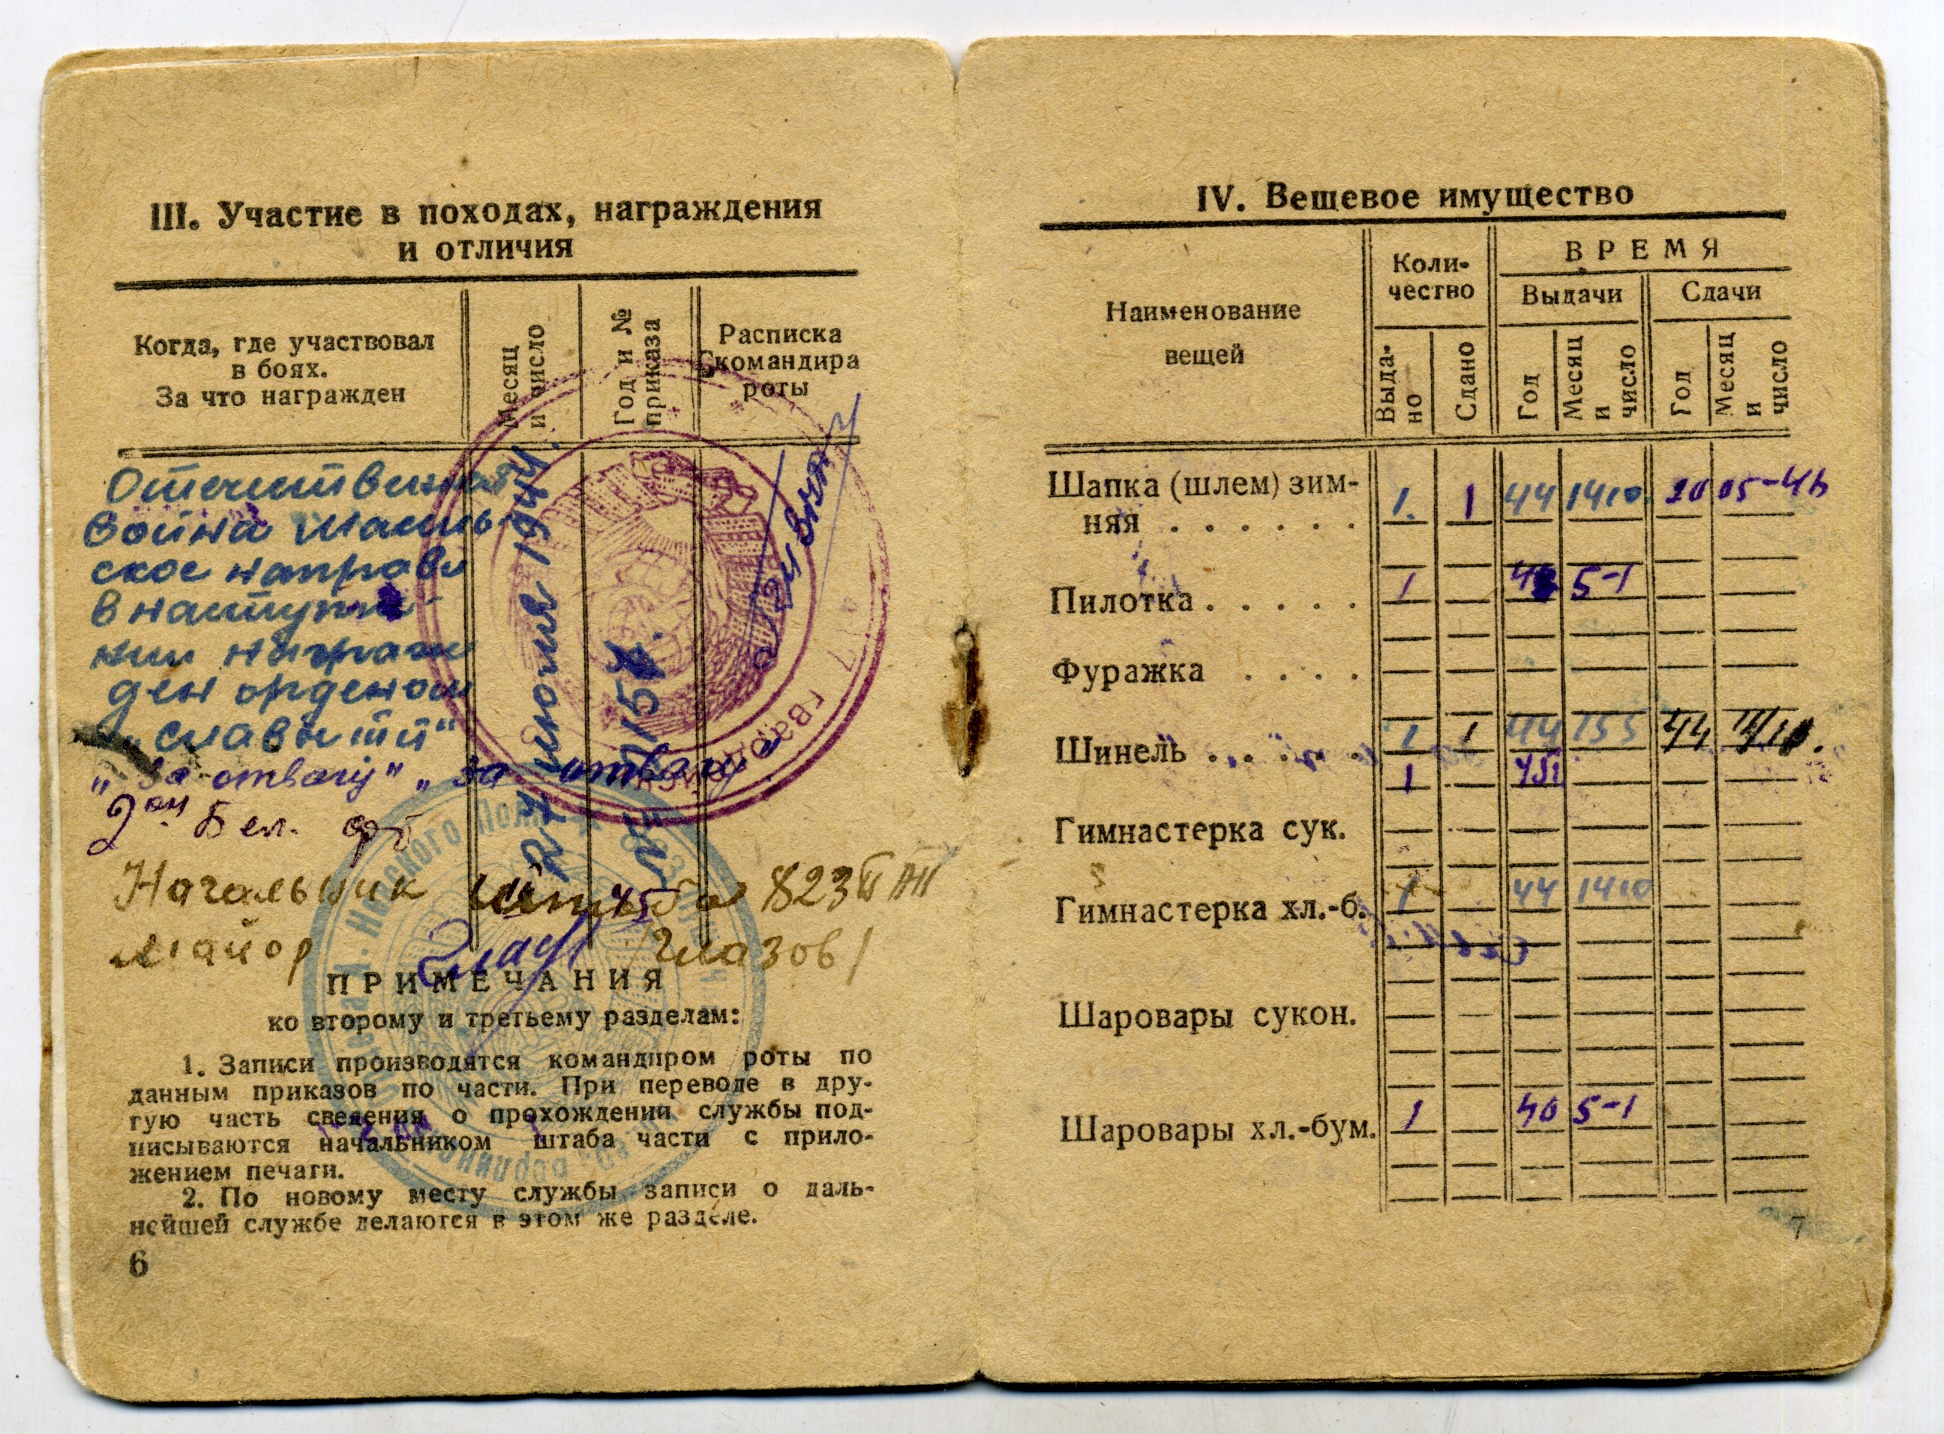 III. Участие в походах, награждения
и отличия
Когда, где участвовал
в боях.
За что награжден
Месяц
и число
Год и №
приказа
Расписка
командира
роты
Отечественная
война
ское направл
в наступле-
нии награж
ден орденом
„Славы III"
„за отвагу" „за отвагу"
2ой Бел. фр
24 июля 1944
Начальник штаба 823
майор /Глазов/
ПРИМЕЧАНИЯ
ко второму и третьему разделам:
1. Записи производятся командиром роты по
данным приказов по части. При переводе в дру-
гую часть сведения о прохождении службы под-
писываются начальником штаба части с прило-
жением печати.
2. По новому месту службы записи о даль-
нейшей службе делаются в этом же разделе.
6
IV. Вещевое имущество
Наименование
вещей
Коли-
чество
ВРЕМЯ
Выдачи
Сдачи
Выда-
но
Сдано
Год
Месяц
и
число
Год
Месяц
и
число
Шапка (шлем) зим-
няя . . . . . . 1 1 44 1410 20 05-46
Пилотка . . . . . 1 5-1
Фуражка . . . .
Шинель . . . . . 1 1 44 155 44
1 45
Гимнастерка сук.
Гимнастерка хл.-б. 1 44 1410
Шаровары сукон.
Шаровары хл.-бум. 1 46 5-1
7